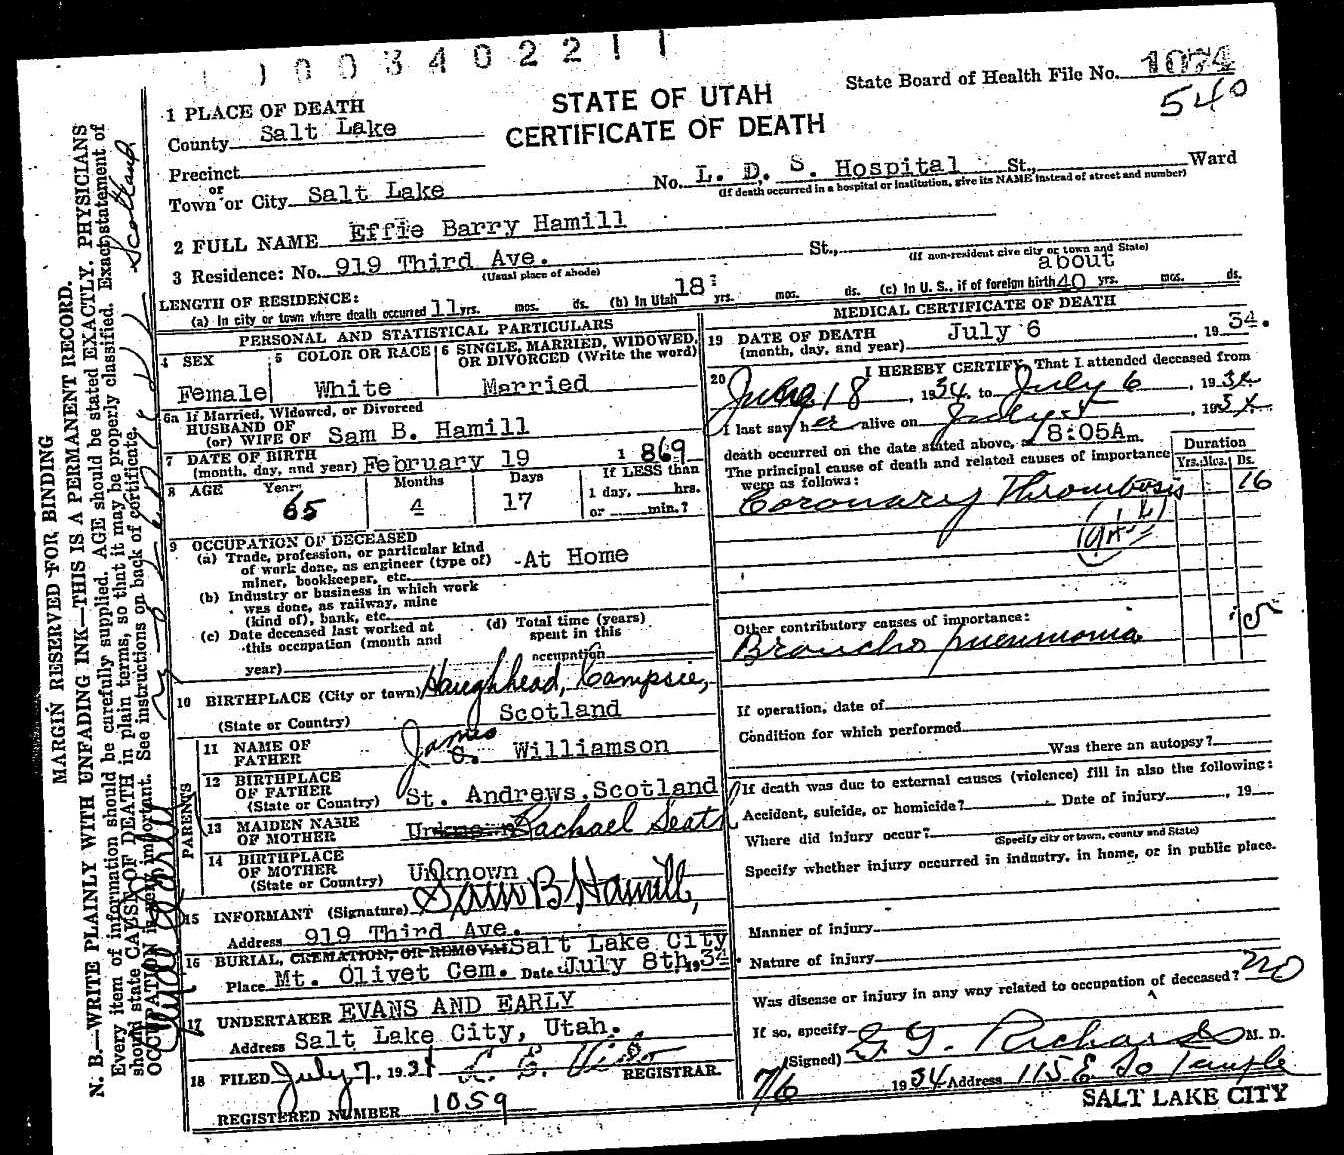 1003402211
State Board of Health File No. 1074
540
STATE OF UTAH
CERTIFICATE OF DEATH
1 PLACE OF DEATH
County Salt Lake
Precinct
or
Town or City Salt Lake No. L. D. S. Hospital St., Ward
(If death occurred in a hospital or institution, give its NAME instead of street and number)
2 FULL NAME Effie Barry Hamill
3 Residence: No. 919 Third Ave. St.,
(Usual place of abode) (If non-resident give city or town and State)
LENGTH OF RESIDENCE:
(a) In city or town where death occurred 11 yrs. mos. ds. (b) In Utah 18 yrs. mos. ds. (c) In U. S., if of foreign birth about 40 yrs. mos. ds.
PERSONAL AND STATISTICAL PARTICULARS
4 SEX
Female
5 COLOR OR RACE
White
6 SINGLE, MARRIED, WIDOWED, OR DIVORCED (Write the word)
Married
6a If Married, Widowed, or Divorced
HUSBAND OF
(or) WIFE OF Sam B. Hamill
7 DATE OF BIRTH
(month, day, and year) February 19 1869
8 AGE Years 65 Months 4 Days 17
If LESS than
1 day, hrs.
or min.?
9 OCCUPATION OF DECEASED
(a) Trade, profession, or particular kind
of work done, as engineer (type of)
miner, bookkeeper, etc. At Home
(b) Industry or business in which work
was done, as railway, mine
(kind of), bank, etc.
(c) Date deceased last worked at
this occupation (month and
year)
(d) Total time (years)
spent in this
occupation
10 BIRTHPLACE (City or town) Haughhead, Campsie,
(State or Country) Scotland
PARENTS
11 NAME OF
FATHER James S. Williamson
12 BIRTHPLACE
OF FATHER
(State or Country) St. Andrews. Scotland
13 MAIDEN NAME
OF MOTHER Unknown Rachael Seath
14 BIRTHPLACE
OF MOTHER
(State or Country) Unknown
15 INFORMANT (Signature) Sam B Hamill
Address 919 Third Ave.
16 BURIAL, CREMATION, OR REMOVAL Salt Lake City
Place Mt. Olivet Cem. Date July 8th, 1934
17 UNDERTAKER EVANS AND EARLY
Address Salt Lake City, Utah.
18 FILED July 7, 1934
REGISTRAR.
REGISTERED NUMBER 1059
MEDICAL CERTIFICATE OF DEATH
19 DATE OF DEATH
(month, day, and year) July 6 1934.
20 I HEREBY CERTIFY, That I attended deceased from
June 18, 1934, to July 6, 1934
I last saw her alive on July, 193
death occurred on the date stated above, at 8:05A m.
The principal cause of death and related causes of importance
were as follows:
Duration
Yrs. Mos. Ds.
Coronary Thrombosis 16
Other contributory causes of importance:
Broncho pneumonia 5
If operation, date of
Condition for which performed
Was there an autopsy?
If death was due to external causes (violence) fill in also the following:
Accident, suicide, or homicide? Date of injury , 19
Where did injury occur?
(Specify city or town, county and State)
Specify whether injury occurred in industry, in home, or in public place.
Manner of injury
Nature of injury
Was disease or injury in any way related to occupation of deceased? no
If so, specify
(Signed) G. G. Richards M. D.
7/6 1934 Address 115 E So Temple
SALT LAKE CITY
MARGIN RESERVED FOR BINDING
N. B.—WRITE PLAINLY WITH UNFADING INK—THIS IS A PERMANENT RECORD.
Every item of information should be carefully supplied. AGE should be stated EXACTLY. PHYSICIANS
should state CAUSE OF DEATH in plain terms, so that it may be properly classified. Exact statement of
OCCUPATION is very important. See instructions on back of certificate.
Scotland